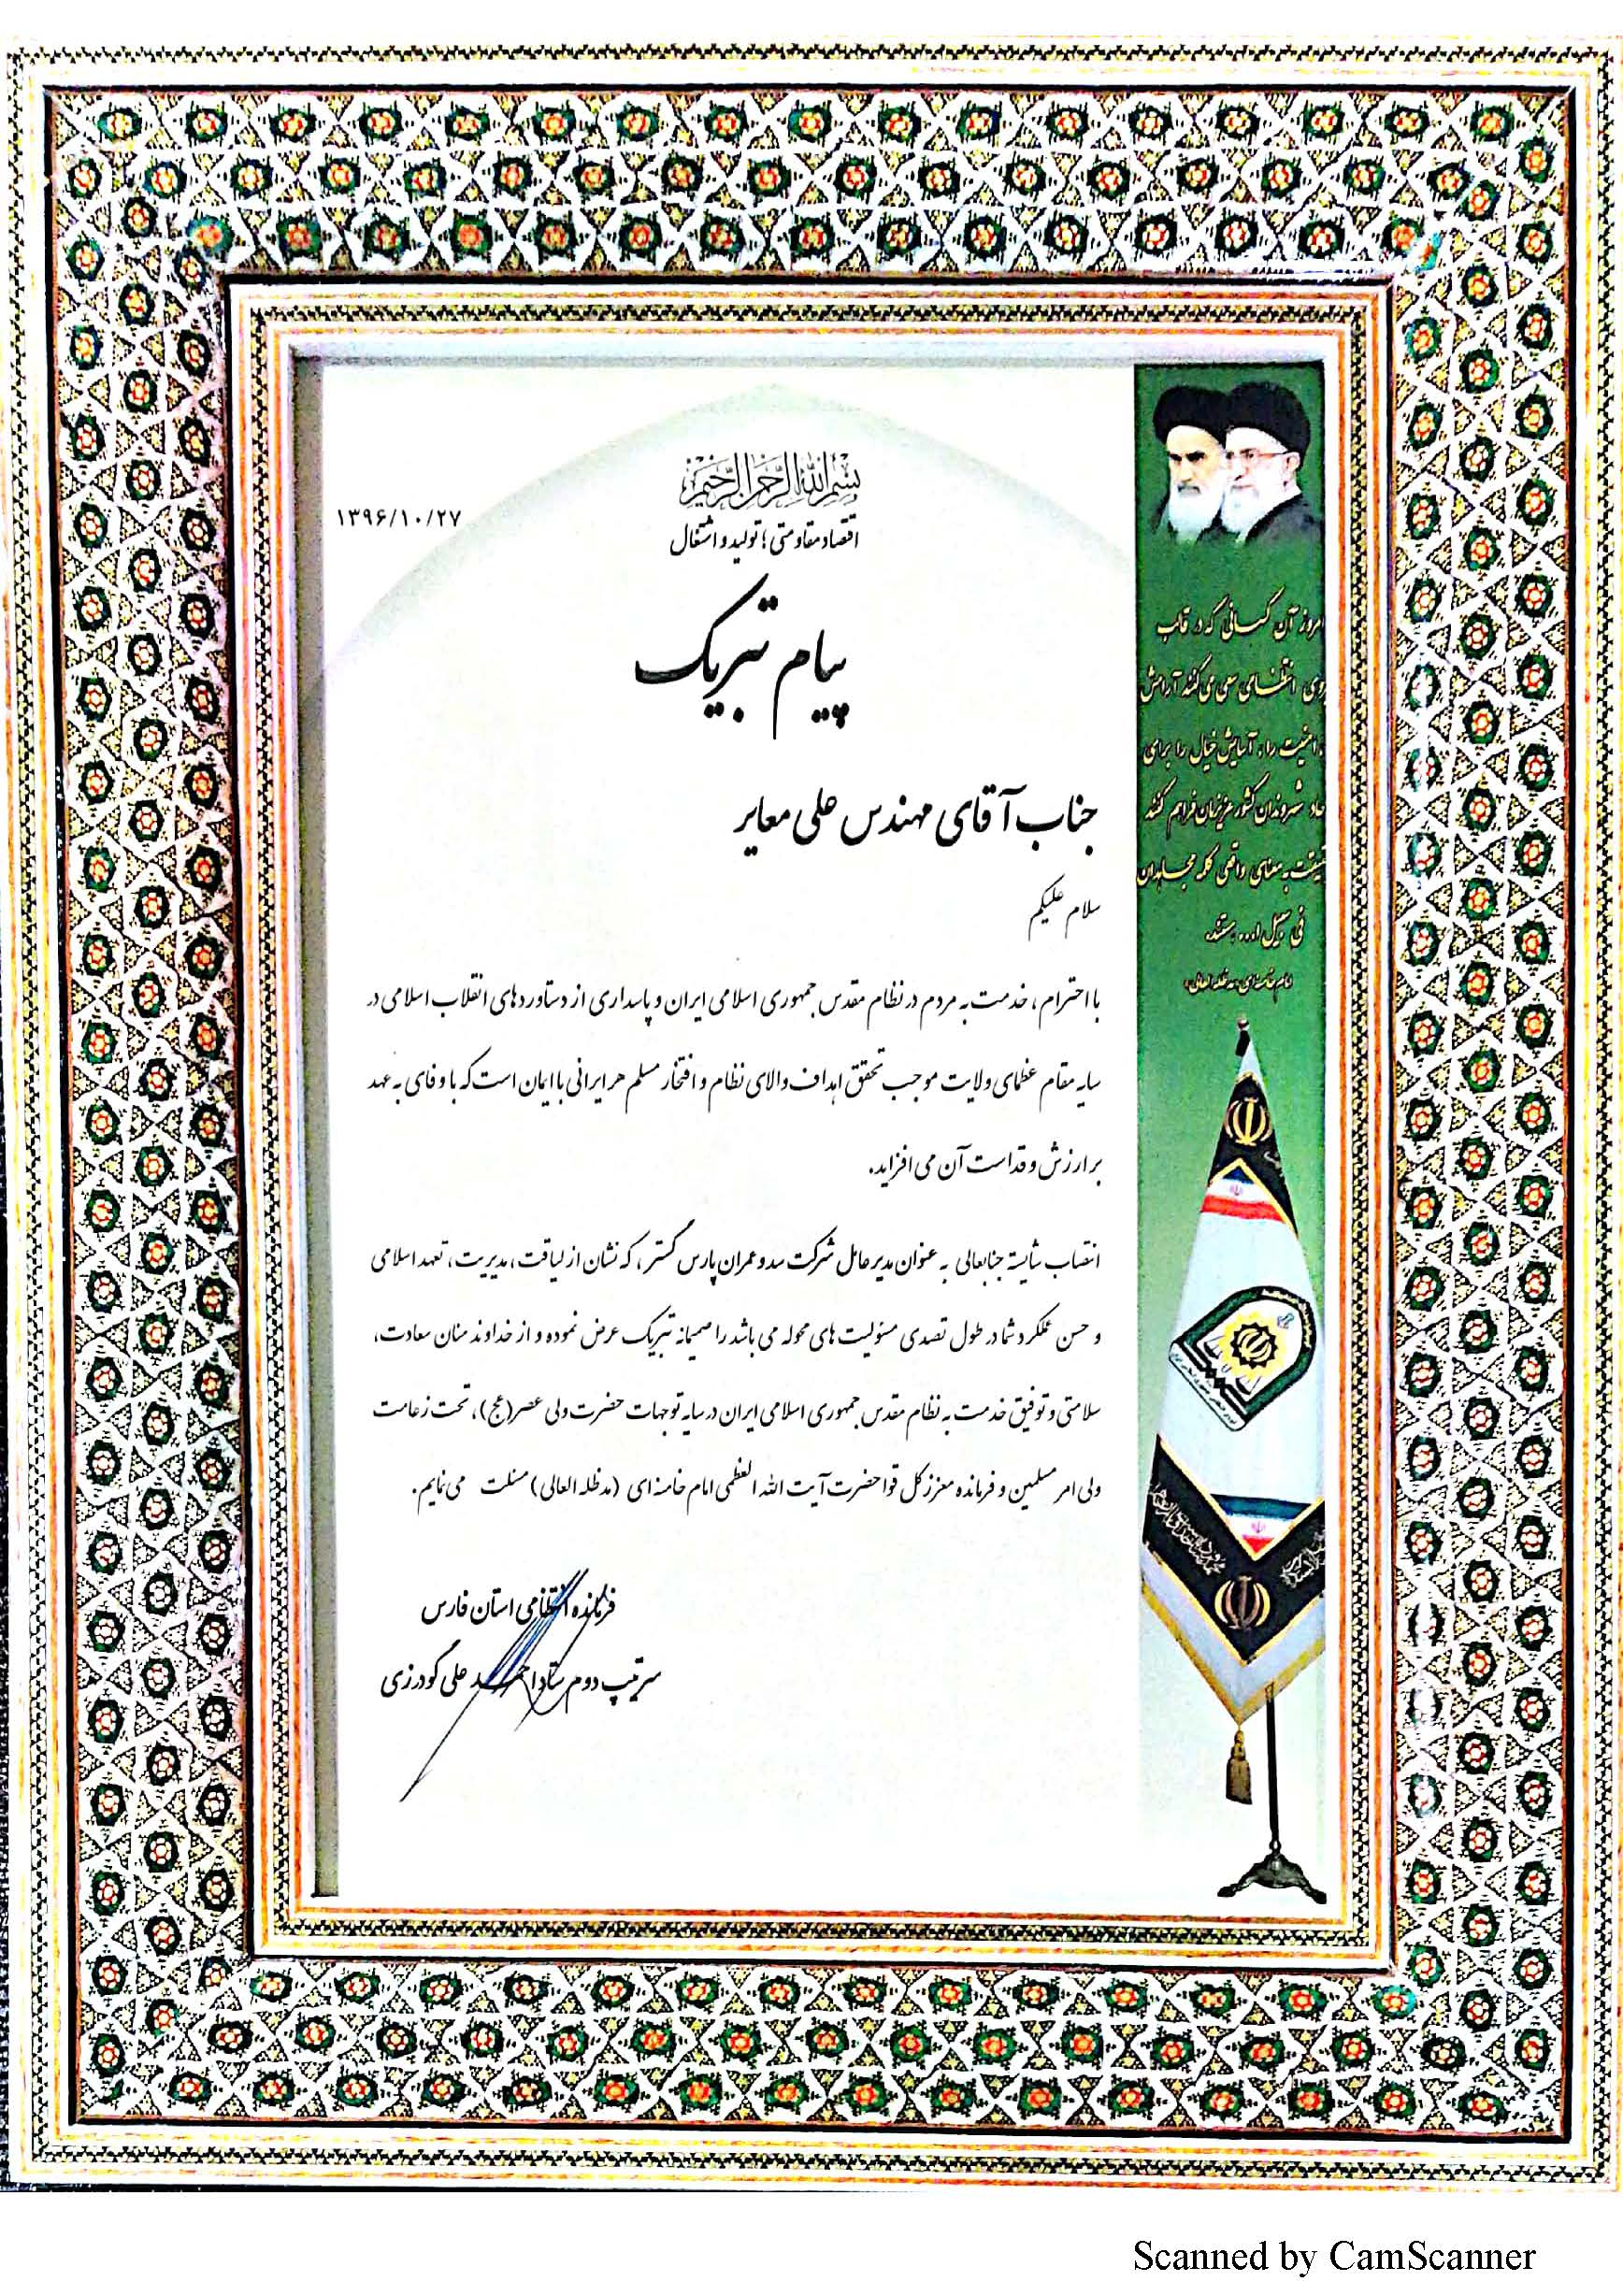 بسم الله الرحمن الرحیم
۱۳۹۶/۱۰/۲۷
اقتصاد مقاومتی؛ تولید و اشتغال
پیام تبریک
جناب آقای مهندس علی معایر
سلام علیکم
با احترام، خدمت به مردم در نظام مقدس جمهوری اسلامی ایران و پاسداری از دستاوردهای انقلاب اسلامی در
سایه مقام عظمای ولایت موجب تحقق اهداف والای نظام و افتخار مسلم هر ایرانی با ایمان است که با وفای به عهد
بر ارزش و قداست آن می افزاید.
انتصاب شایسته جنابعالی به عنوان مدیرعامل شرکت سد و عمران پارس گستر، که نشان از لیاقت، مدیریت، تعهد اسلامی
و حسن عملکرد شما در طول تصدی مسئولیت های محوله می باشد را صمیمانه تبریک عرض نموده و از خداوند منان سعادت،
سلامتی و توفیق خدمت به نظام مقدس جمهوری اسلامی ایران در سایه توجهات حضرت ولی عصر(عج)، تحت زعامت
ولی امر مسلمین و فرمانده معزز کل قوا حضرت آیت الله العظمی امام خامنه ای (مدظله العالی) مسئلت می نمایم.
فرمانده انتظامی استان فارس
سرتیپ دوم ستاد احمد علی گودرزی
امروز آن کسانی که در قالب
انتظامی سعی می کنند آرامش
امنیت را، آسایش خیال را برای
شهروندان کشور عزیزمان فراهم کنند
به معنای واقعی کلمه مجاهدان
فی سبیل ا... هستند.
امام خامنه ای «مدظله العالی»
Scanned by CamScanner